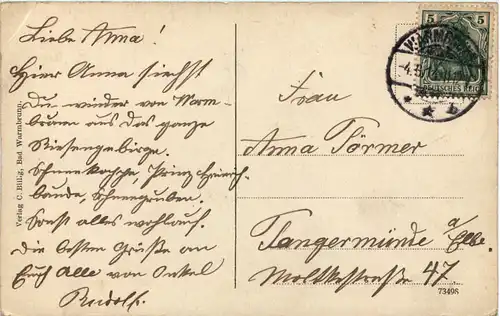 Liebe Anna!
Hier Anna siehst
Du wieder von Warm-
brunn aus das ganze
Riesengebirge.
Schneekoppe, Prinz Heinrich-
baude, Schneegruben.
Sonst alles wohlauf.
Die besten Grüße an
Euch Alle von Onkel
Rudolf.
Verlag C. Billig, Bad Warmbrunn.
Frau
Anna Törmer
Tangermünde a/Elbe.
Moltkestraße 47.
73496
5 5
DEUTSCHES REICH